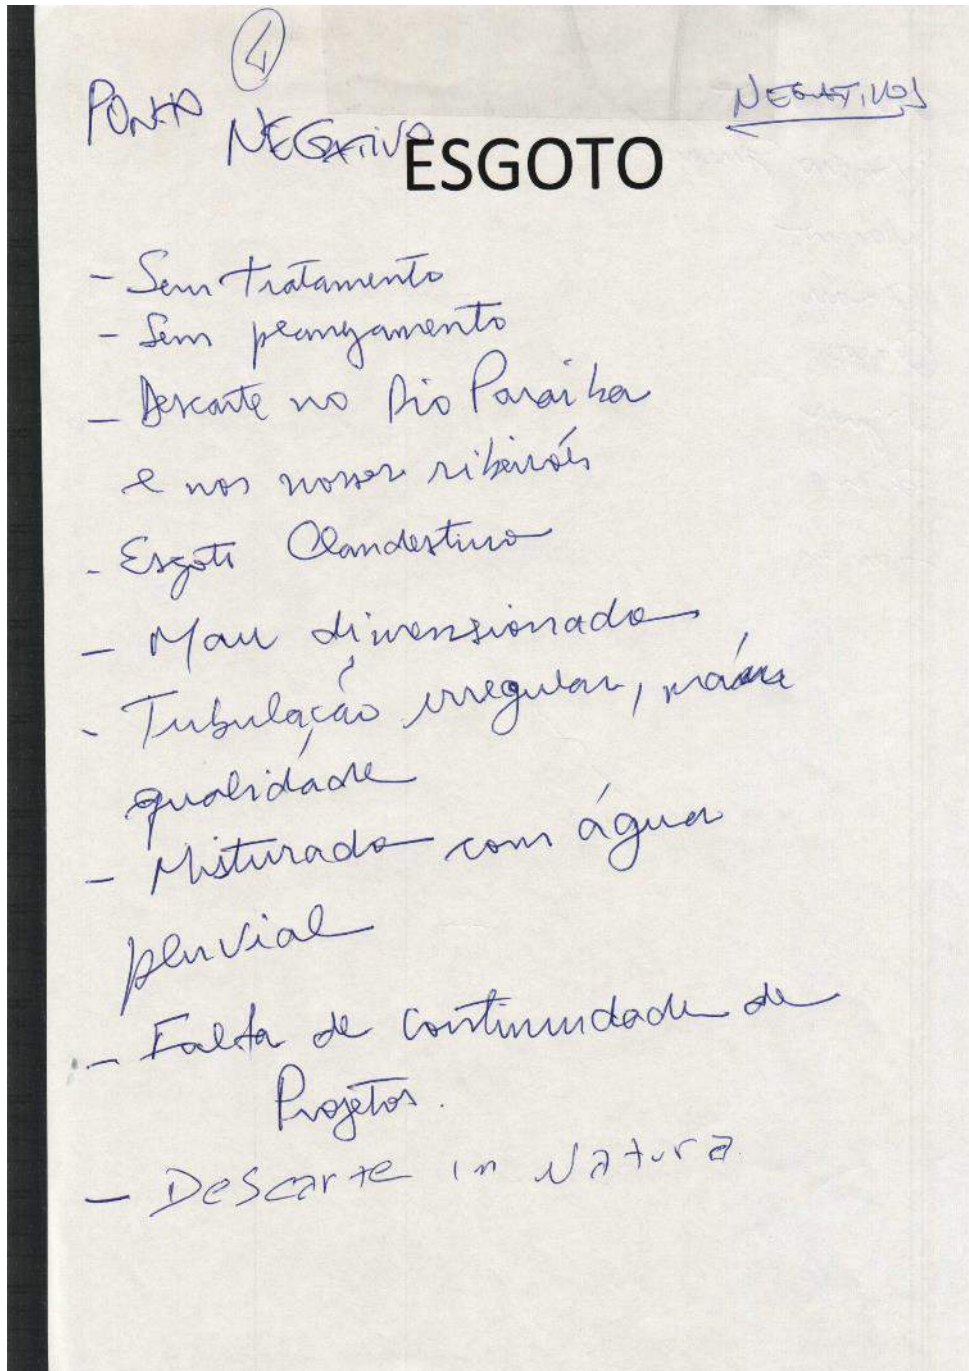 4
PONTO NEGATIVO
NEGATIVOS
ESGOTO
- Sem tratamento
- Sem planejamento
- Descarte no Rio Paraiba
e nos nossos ribeirões
- Esgoto Clandestino
- Mau dimensionado
- Tubulação irregular, má
qualidade
- Misturado com água
pluvial
- Falta de continuidade de
Projetos.
- Descarte in Natura